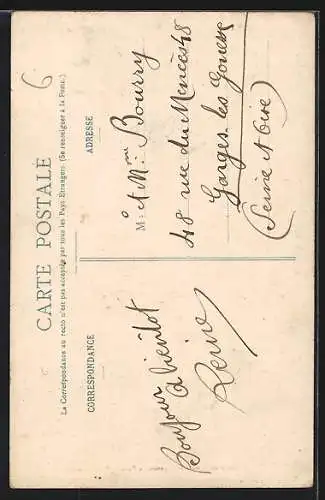 6
CARTE POSTALE
La Correspondance au recto n'est pas acceptée par tous les Pays Etrangers. (Se renseigner à la Poste.)
CORRESPONDANCE
ADRESSE
Bonjour
à bientôt
M: et Mme Bourry
48 rue du
Garges les Gonesse
(Seine et Oise)